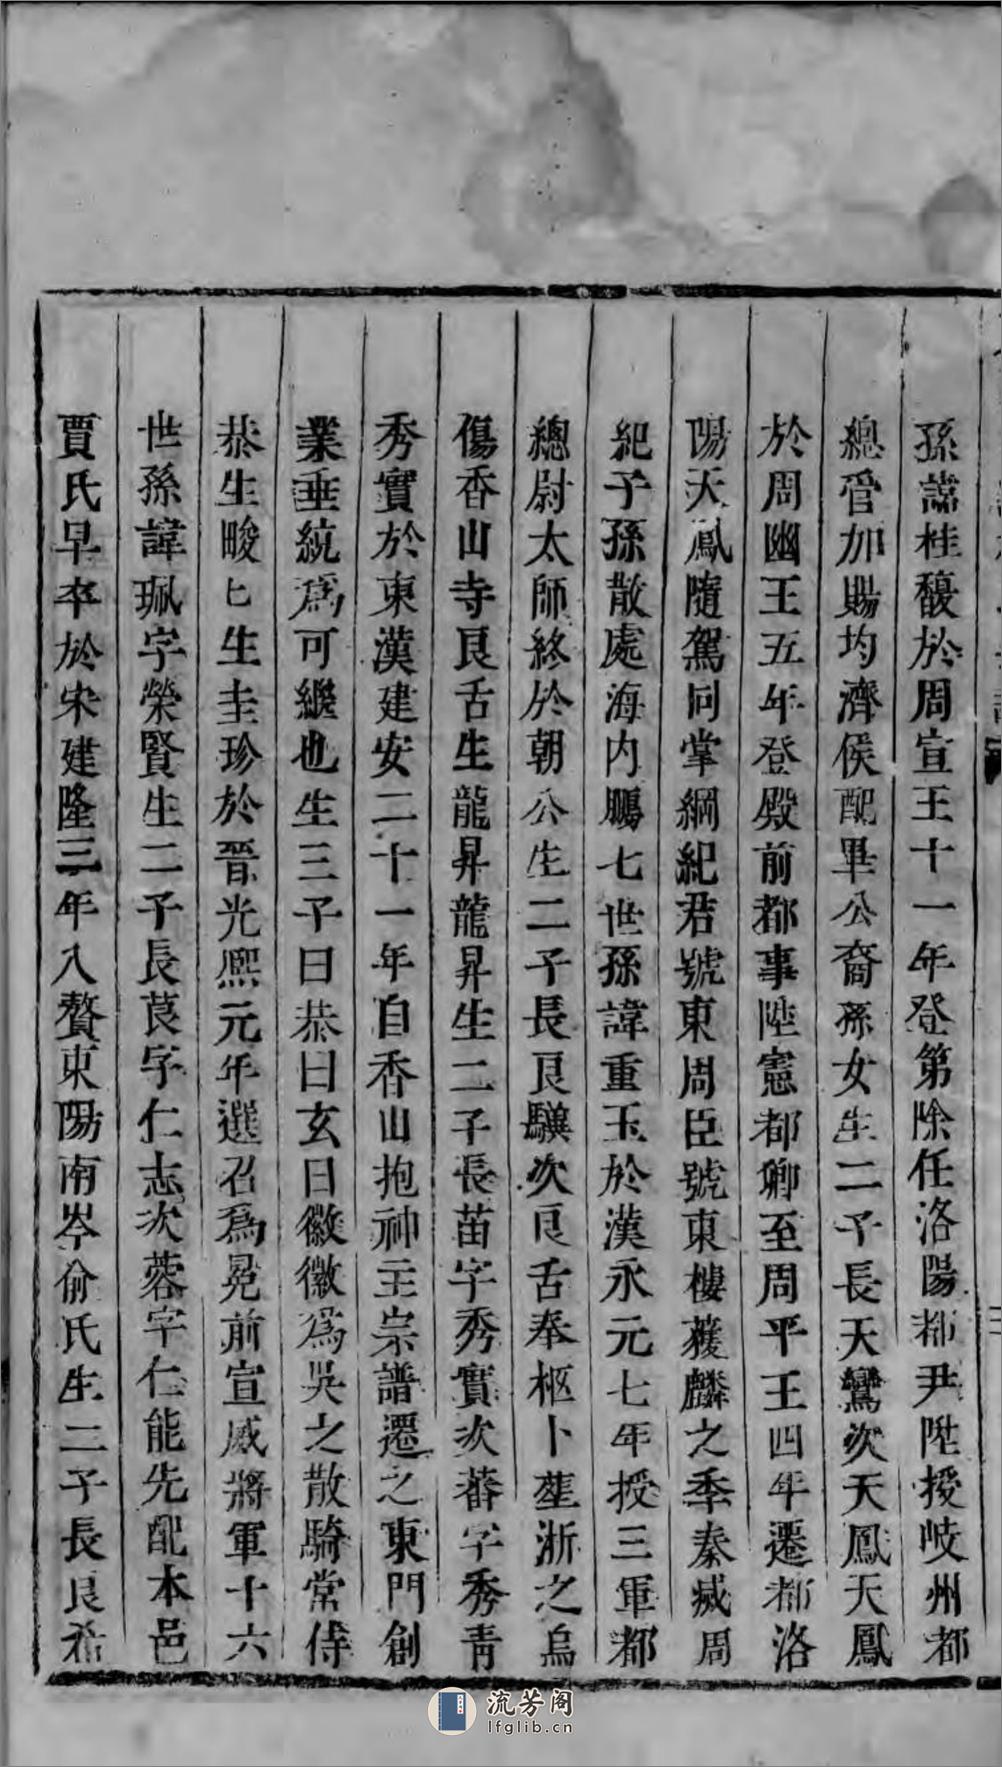 孫諱桂馥於周宣王十一年登第除任洛陽都尹陞授岐州都
總管加賜均濟侯配畢公裔孫女生二子長天鸞次天鳳天鳳
於周幽王五年登殿前都事陞憲都卿至周平王四年遷都洛
陽天鳳隨駕同掌綱紀君號東周臣號東樓獲麟之季秦滅周
紀子孫散處海内鵬七世孫諱重玉於漢永元七年授三軍都
總尉太師終於朝公生二子長良驥次良舌奉柩卜塟浙之烏
傷香山寺良舌生龍昇龍昇生二子長苗字秀實次蕃字秀青
秀實於東漢建安二十一年自香山抱神主宗譜遷之東門創
業垂統爲可繼也生三子曰恭曰玄曰徽徽爲吳之散騎常侍
恭生畯匕生圭珍於晉光熙元年選召爲晃前宣威將軍十六
世孫諱珮字榮賢生二子長茛字仁志次蓉字仁能先配本邑
賈氏早卒於宋建隆三年入贅東陽南岑俞氏生二子長良希
流芳阁
lfglib.cn